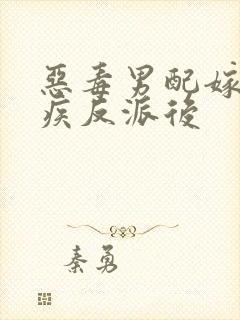 惡毒男配嫁
疾反派後
秦勇